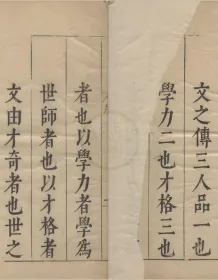 文之傳三人品一也
學力二也才格三也
者也以學力者學爲
世師者也以才格者
文由才奇者也世之